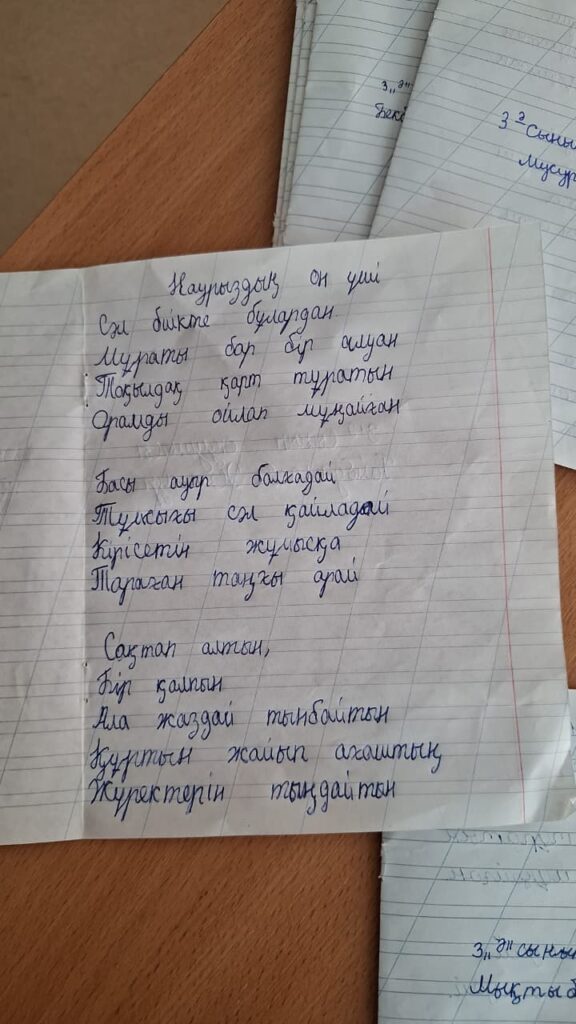 3 „Ә"
Бек
3 Ә сыны
Мусур
Наурыздың он үші
Сәл биікте бұлардан
Мұраты бар бір алуан
Тоқылдақ қарт тұратын
Орамды ойлап мұңайған
Басы ауыр балғадай
Тұмсығы сәл қайладай
Кірісетін жұмысқа
Тараған таңғы арай
Сақтап алтын,
Бір қалпын
Ала жаздай тынбайтын
Құртын жайып ағаштың
Жүректерін тыңдайтын
3 „Ә" сынын
Мықтыб